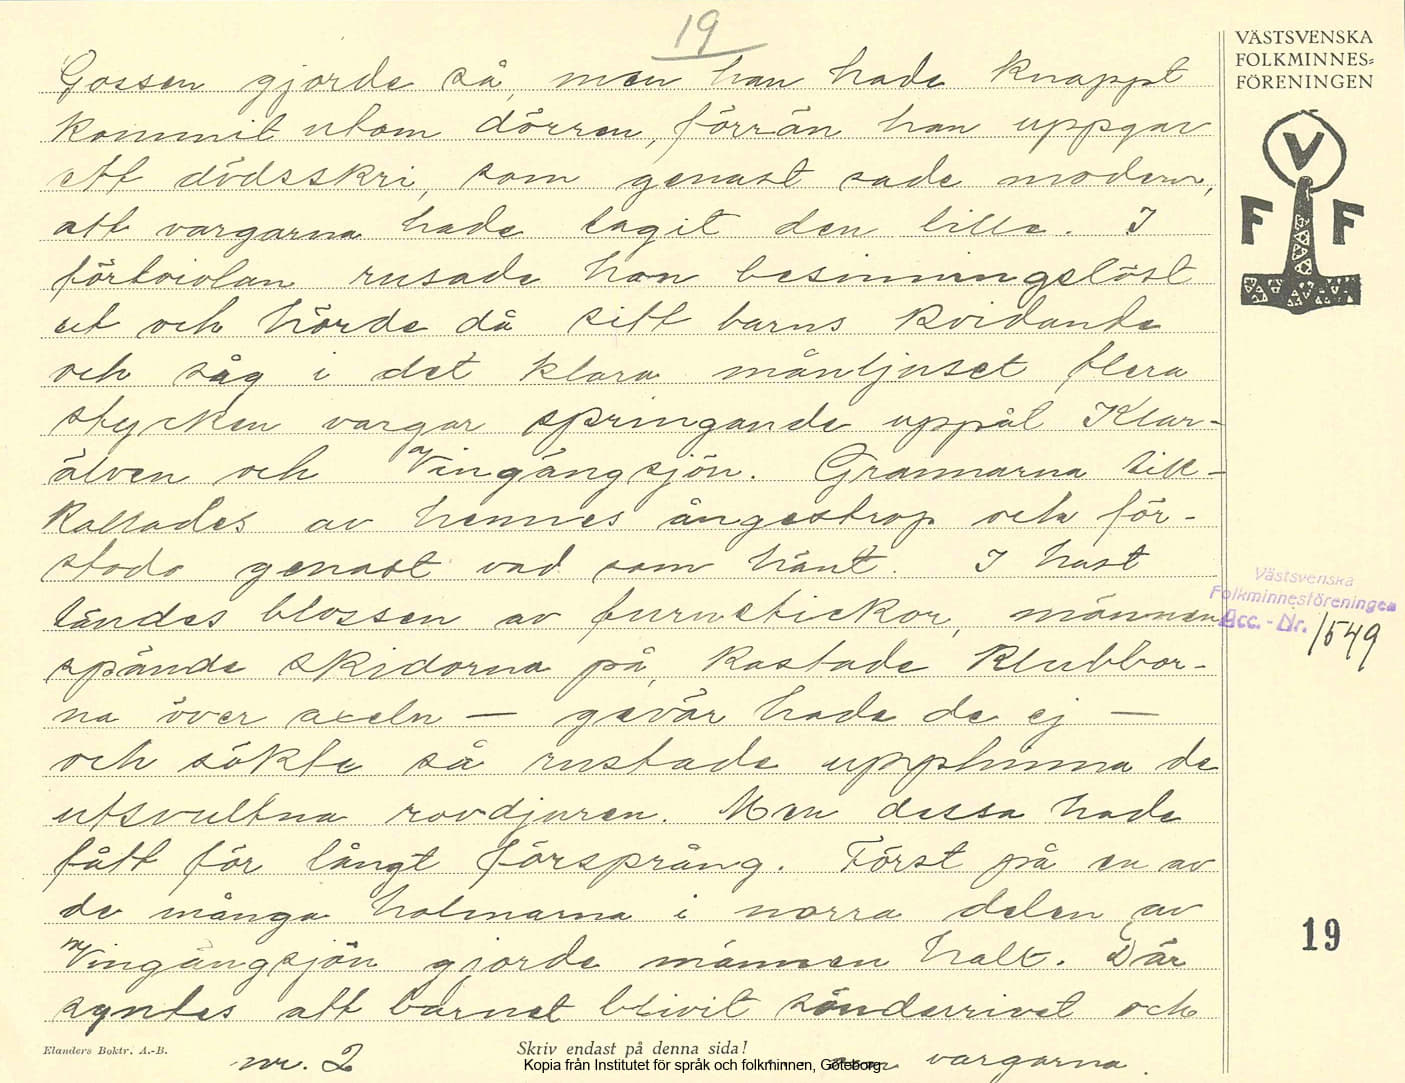 19
VÄSTSVENSKA
FOLKMINNES=
FÖRENINGEN
V
F F
Gossen gjorde så, men han hade knappt
kommit utom dörren, förrän han uppgav
ett dödsskri, som genast sade modern,
att vargarna hade tagit den lille. I
förtvivlan rusade hon besinningslöst
ut och hörde då sitt barns kvidande
och såg i det klara månljuset flera
stycken vargar springande uppåt Klar-
älven och Vingängsjön. Grannarna till-
kallades av hennes ångestrop och för-
stodo genast vad som hänt. I hast
tändes blossen av furustickor, männen
spände skidorna på, kastade klubbor-
na över axeln — gevär hade de ej —
och sökte så rustade upphinna de
utsvultna rovdjuren. Men dessa hade
fått för långt försprång. Först på en av
de många holmarna i norra delen av
Vingängsjön gjorde männen halt. Där
syntes att barnet blivit sönderrivet och
Västsvenska
Folkminnesföreningen
Acc. - Nr. 1549
19
Elanders Boktr. A.-B.
Skriv endast på denna sida!
nr. 2
vargarna.
Kopia från Institutet för språk och folkminnen, Göteborg